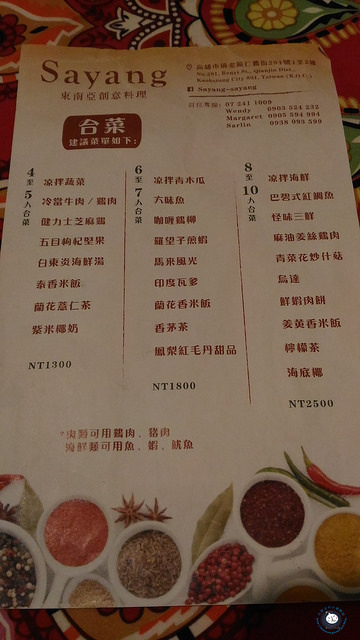 Sayang
東南亞創意料理
No.291, Renai St., Qianjin Dist.,
Kaohsiung City 801, Taiwan (R.O.C.)
Sayang-sayang
訂位專線: 07 241 1009
Wendy 0903 524 232
Margaret 0905 594 994
Sarlin 0938 093 599
合菜
建議菜單如下:
4至5人合菜
涼拌蔬菜
冷當牛肉/鷄肉
健力士芝麻鷄
五目枸杞堅果
白東炎海鮮湯
泰香米飯
蘭花薏仁茶
紫米椰奶
NT1300
6至7人合菜
涼拌青木瓜
六味魚
咖喱鷄柳
羅望子煎蝦
馬來風光
印度瓦爹
蘭花香米飯
香茅茶
鳳梨紅毛丹甜品
NT1800
8至10人合菜
涼拌海鮮
巴碧式紅鯛魚
怪味三鮮
麻油姜絲鷄肉
青菜花炒什菇
烏達
鮮蝦肉餅
姜黃香米飯
檸檬茶
海底椰
NT2500
*肉類可用鷄肉、豬肉
海鮮類可用魚、蝦、魷魚